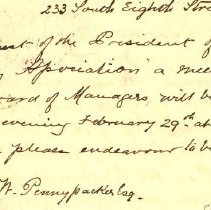 233 South Eighth Stre
uest of the President of
Association a mee
oard of Managers, will be
evening February 29th at
please endeavour to be
W. Pennypacker Esq.